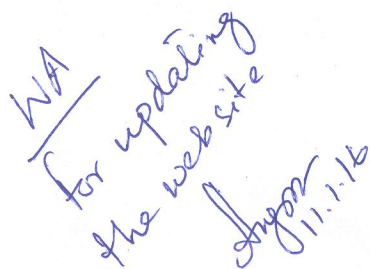 WA
for updating
the web site
11.1.16